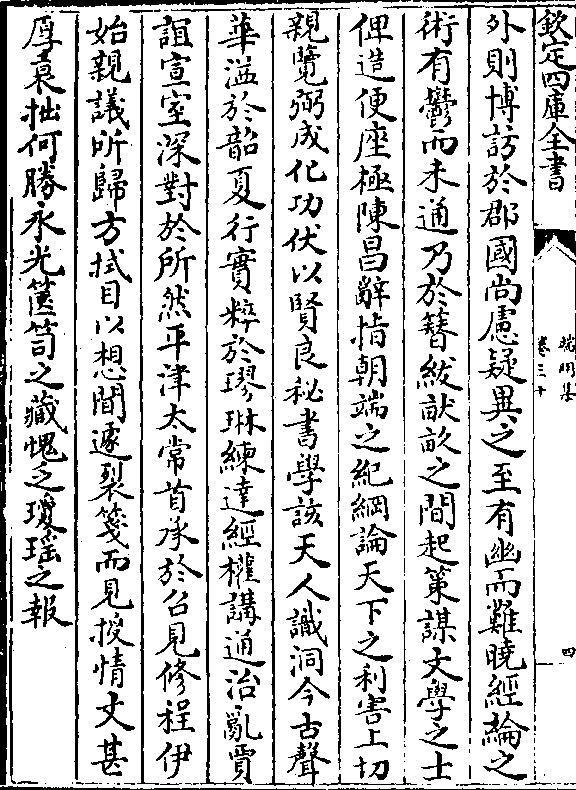 欽定四庫全書
端明集
卷三十
四
外則博訪於郡國尚慮疑異之至有幽而難曉經綸之
術有鬱而未通乃於簪紱畎畝之間起策謀文學之士
俾造便座極陳昌辭指朝端之紀綱論天下之利害上切
親覽弼成化功伏以賢良秘書學該天人識洞今古聲
華溢於韶夏行實粹於璆琳練達經權講通治亂賈
誼宣室深對於所然平津太常首承於召見修程伊
始親議所歸方拭目以想聞遽裂箋而見授情文甚
厚衰拙何勝永光篋笥之藏愧乏瓊瑶之報